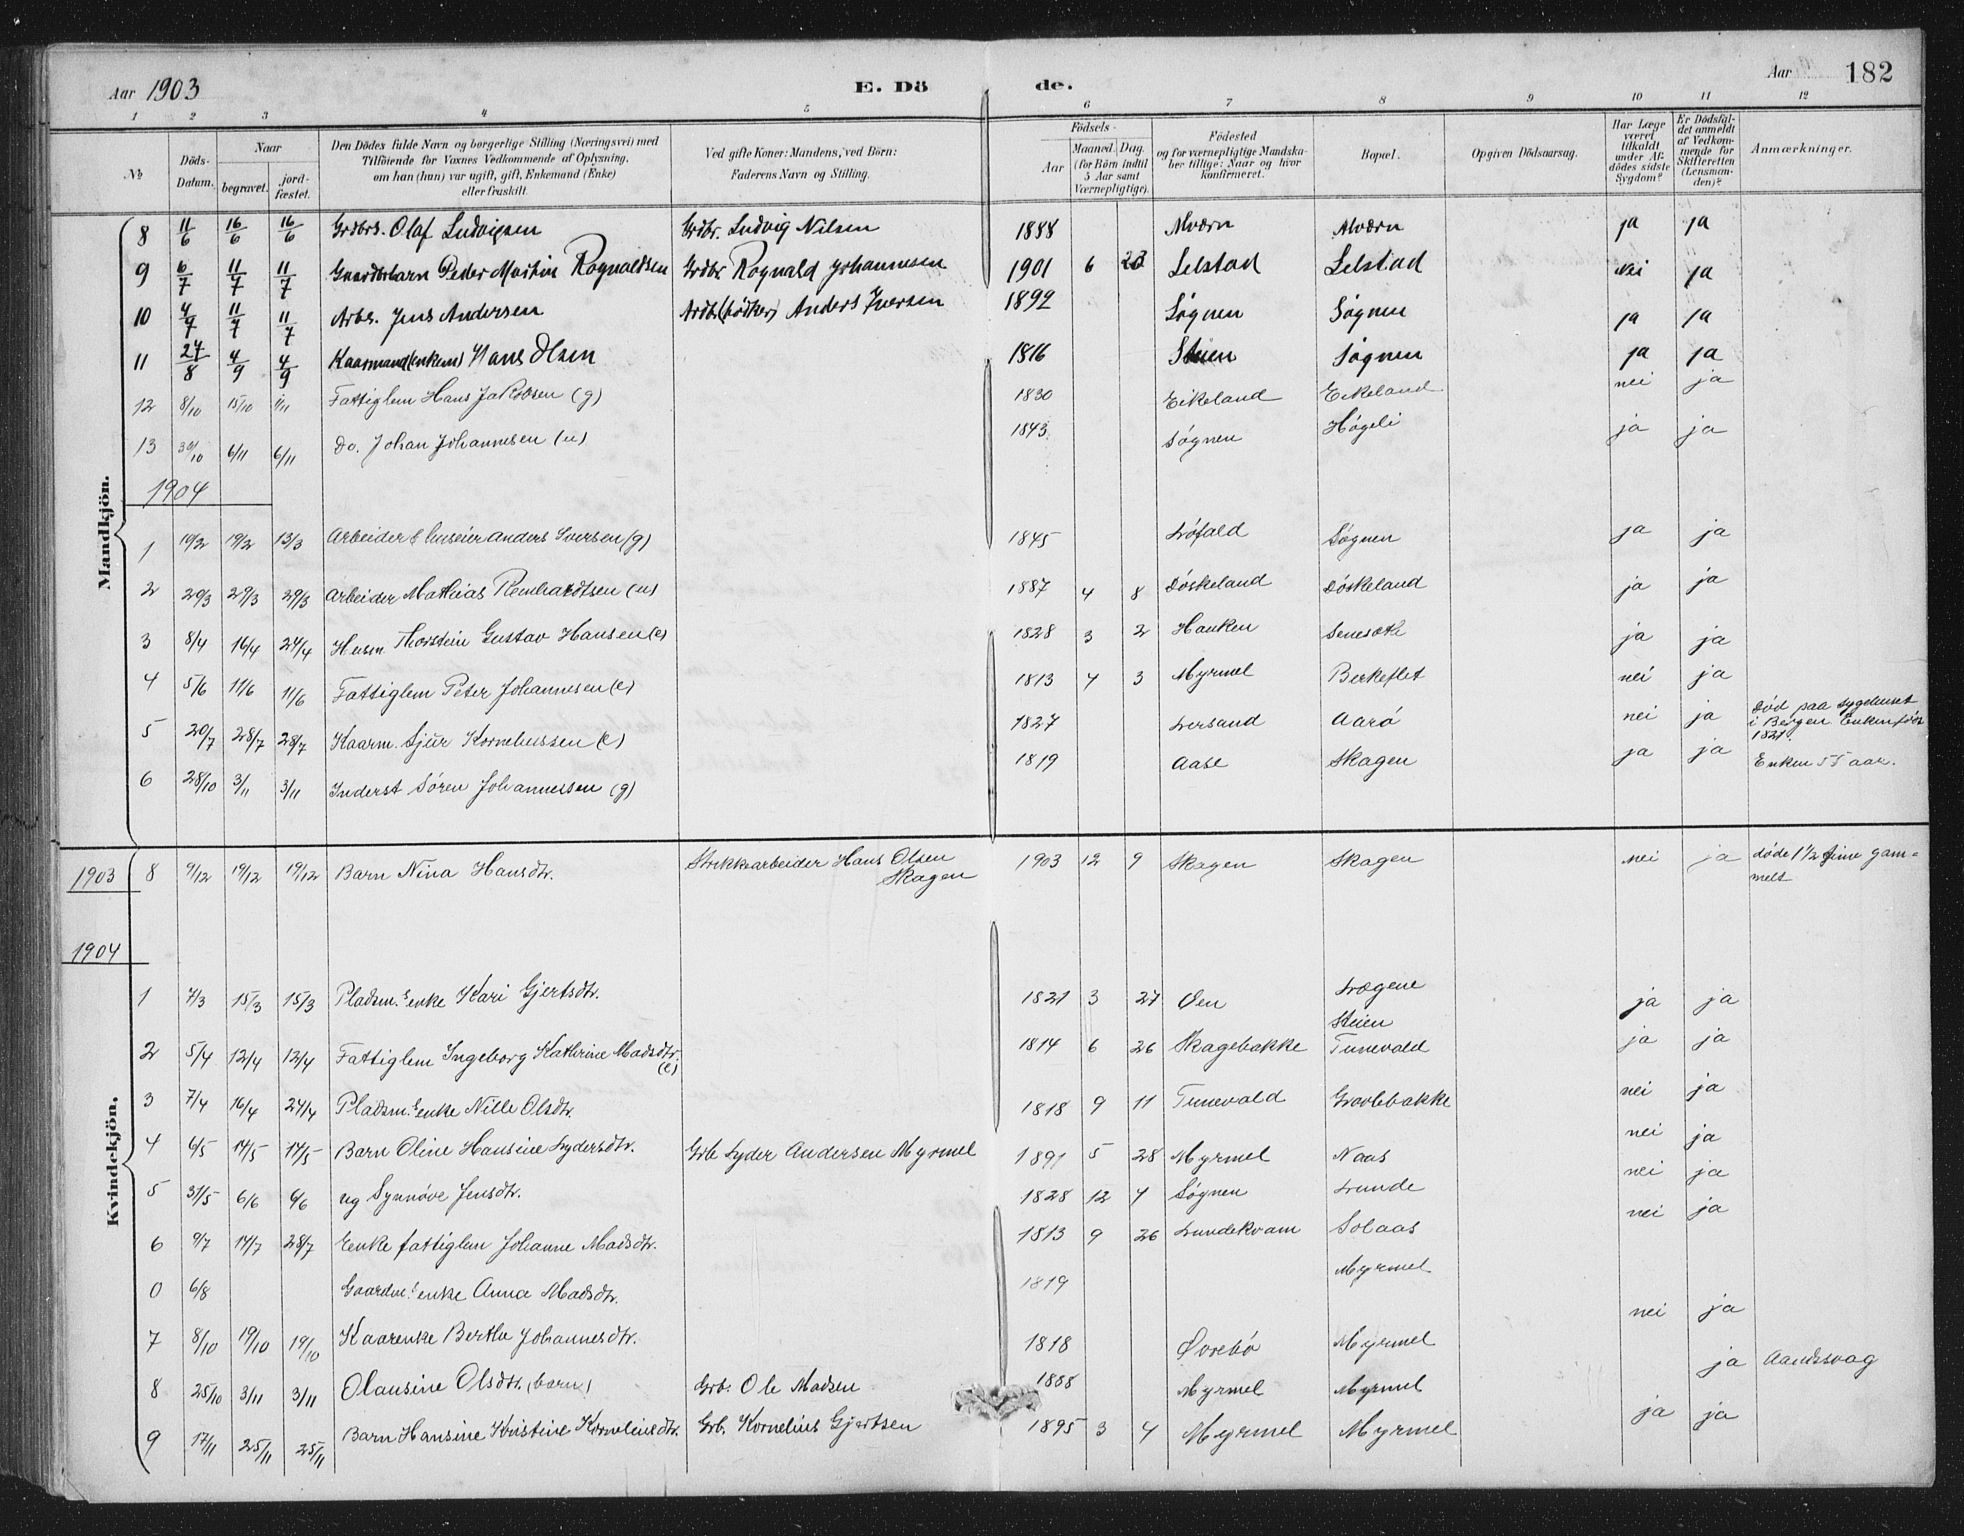 Aar 1903 E. Dö de. Aar 182
1 2 3 4 5 6 7 8 9 10 11 12
№ Döds-Datum. Naar begravet. jordfæstet. Den Dödes fulde Navn og borgerlige Stilling (Næringsvei) med Tilföiende for Voxnes Vedkommende af Oplysning, om han (hun) var ugift, gift, Enkemand (Enke) eller fraskilt. Ved gifte Koner: Mandens, ved Börn: Faderens Navn og Stilling. Födsels- Aar Maaned. Dag. (for Börn indtil 5 Aar samt Værnepligtige). Födested og for værnepligtige Mandskaber tillige: Naar og hvor konfirmeret. Bopæl. Opgiven Dödsaarsag. Har Læge været tilkaldt under Afdödes sidste Sygdom? Er Dödsfaldet anmeldt af Vedkommende for Skifteretten (Lensmanden)? Anmærkninger.
Mandkjön.
8 11/6 16/6 16/6 Grdbrs. Olaf Ludvigsen Grdbr. Ludvig Nilsen 1888 Alværn Alværn ja ja
9 6/7 11/7 11/7 Gaardbrbarn Peder Martin Rognaldsen Grdbr Rognald Johannesen 1901 6 Lelstad Lelstad nei ja
10 4/7 11/7 11/7 Arbs. Jens Andersen Arbr (bödker) Anders Iversen 1892 Søgnen Søgnen ja ja
11 24/8 4/9 4/9 Kaarmand (enkem) Hans Olsen 1816 Steien Søgnen ja ja
12 8/10 15/10 1/11 Fattiglem Hans Jakobsen (g) 1830 Eikeland Eikeland nei ja
13 30/10 6/11 6/11 Do. Johan Johannesen (u) 1843 Søgnen Høgeli ja ja
1904
1 10/2 19/2 13/3 Arbeider & huseier Anders Iversen (g) 1845 Løfald Søgnen ja ja
2 20/3 29/3 29/3 Arbeider Mathias Reinhardtsen (u) 1887 4 8 Döskeland Döskeland ja ja
3 8/4 16/4 24/4 Husm Thorstein Gustav Hansen (e) 1828 3 2 Hauken ja ja
4 5/6 11/6 11/6 Fattiglem Peter Johannesen (e) 1813 4 3 Myrmel Berkeflet nei ja
5 20/7 28/7 28/7 Kaarm. Sjur Korneliussen (e) 1827 Aarö nei ja Död paa sygehuset
i Bergen Enkem. født
1827.
6 28/10 3/11 3/11 Inderst Sören Johannessen (g) 1819 Aase Skagen ja ja Enken 55 aar.
Kvindekjön.
1903 8 9/12 19/12 19/12 Barn Nina Hansdtr. Strikkearbeider Hans Olsen
Skagen 1903 12 9 Skagen Skagen nei ja døde 1 1/2 time gam=
melt
1904
1 7/3 15/3 15/3 Pladsm. enke Kari Gjertsdtr. 1821 3 27 Øen
Steien ja ja
2 5/4 12/4 12/4 Fattiglem Ingeborg Kathrine Madsdtr.
(e) 1814 6 26 Skagebakke Tunevald ja ja
3 7/4 16/4 24/4 Pladsm. enke Nille Olsdtr. 1818 9 11 Tunevald Grovlebakke nei ja
4 6/5 14/5 14/5 Barn Oline Hansine Lydersdtr. Grb Lyder Andersen Myrmel 1891 5 28 Myrmel Naas nei ja
5 31/5 6/6 6/6 ug Synnöve Jensdtr. 1828 12 4 Søgnen Lunde nei ja
6 9/7 14/7 28/7 Enke fattiglem Johanne Madsdtr. 1813 9 26 Lundekvam Solaas nei ja
0 6/8 Gaardm. enke Anna Madsdtr. 1819 Myrmel
7 8/10 19/10 19/10 Kaarenke Bertha Johannesdtr. 1818 Øvrebö Myrmel nei ja
8 25/10 3/11 3/11 Olausine Olsdtr. (barn) Grb. Ole Madsen 1888 Myrmel Myrmel ja Aandssvag
9 17/11 25/11 25/11 Barn Hansine Kristine Korneliusdtr. Grb. Kornelius Gjertsen 1895 3 4 Myrmel Myrmel ja ja